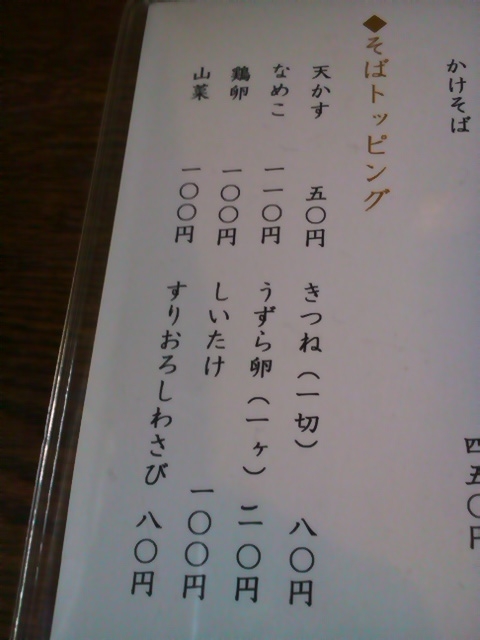 かけそば 四五〇円
◆そばトッピング
天かす 五〇円
きつね（一切） 八〇円
なめこ 一一〇円
うずら卵（一ヶ） 二〇円
鶏卵 一〇〇円
しいたけ 一〇〇円
山菜 一〇〇円
すりおろしわさび 八〇円